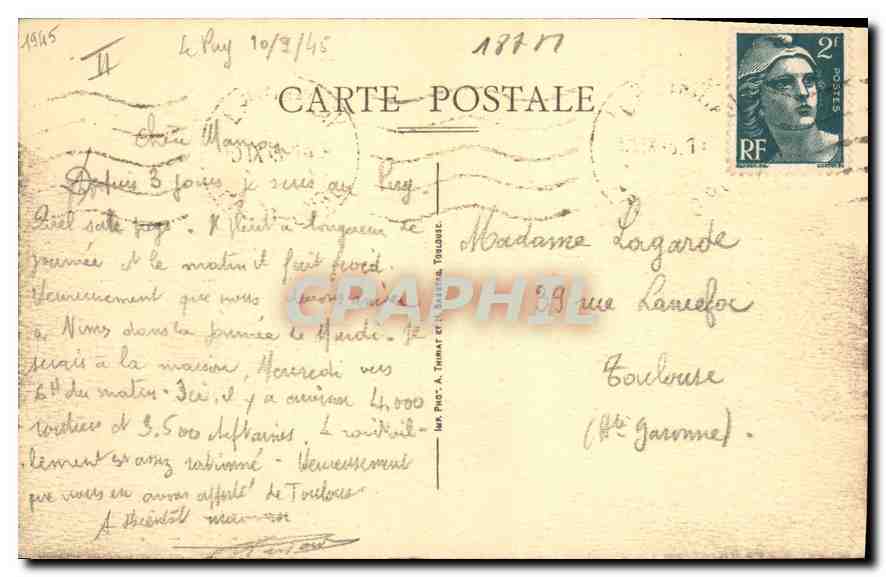 1945
II
Le Puy 10/9/45
187 M
2F
POSTES
RF
CARTE POSTALE
Chère Maman
Depuis 3 jours je suis au Puy
Quel sale pays. Il pleut à longueur de
journée et le matin il fait froid.
Heureusement que nous devons arriver
à Nimes dans la journée de Mardi. Je
serais à la maison, Mercredi vers
6H du matin. Ici, il y a environ 4.000
routiers et 3.500 cheftaines. Le ravitail-
lement est assez rationné - Heureusement
que nous en avons apporté de Toulouse
A Bientôt maman
Madame Lagarde
39 rue Lancefoc
Toulouse
(Hte Garonne).
IMP. PHOT. A. THIRIAT ET H. BASUYAU, TOULOUSE.
CPAPHIL